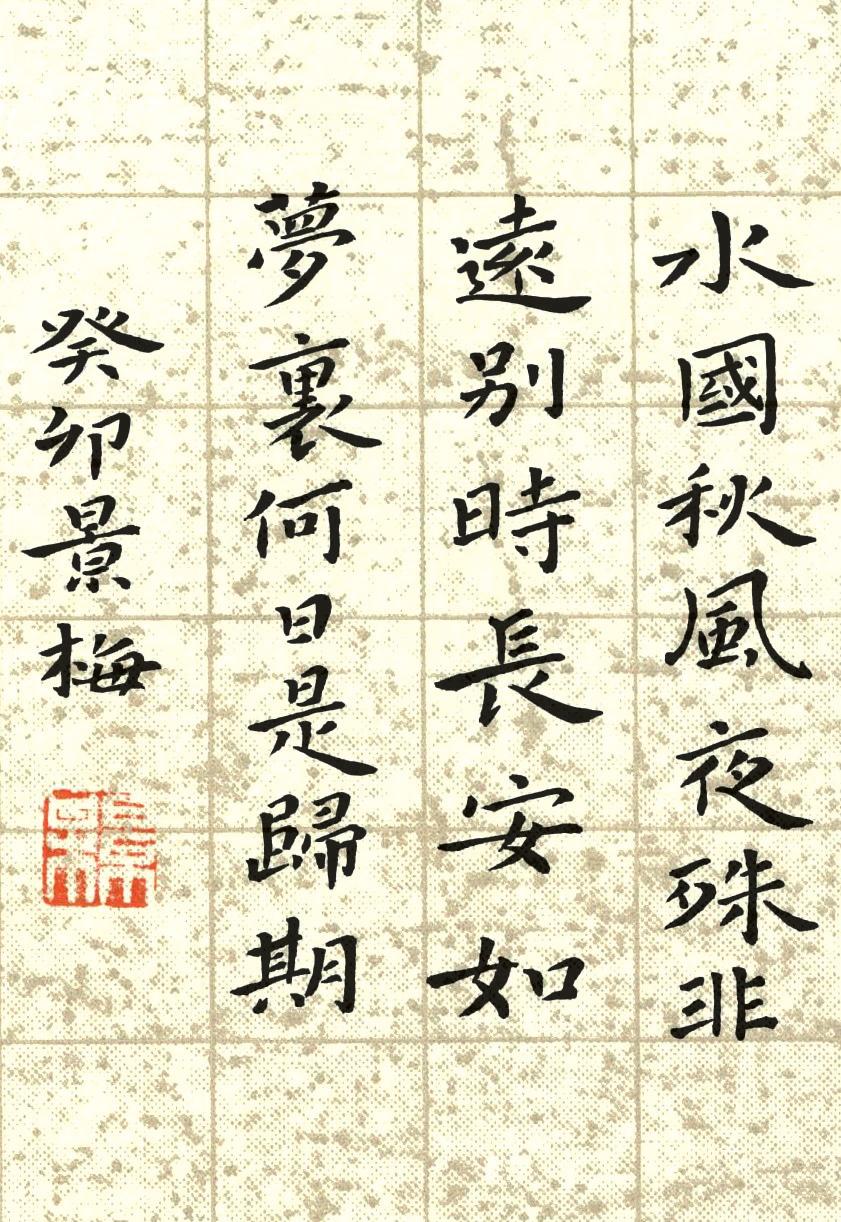 水國秋風夜殊非
遠別時長安如
夢裏何日是歸期
癸卯景梅